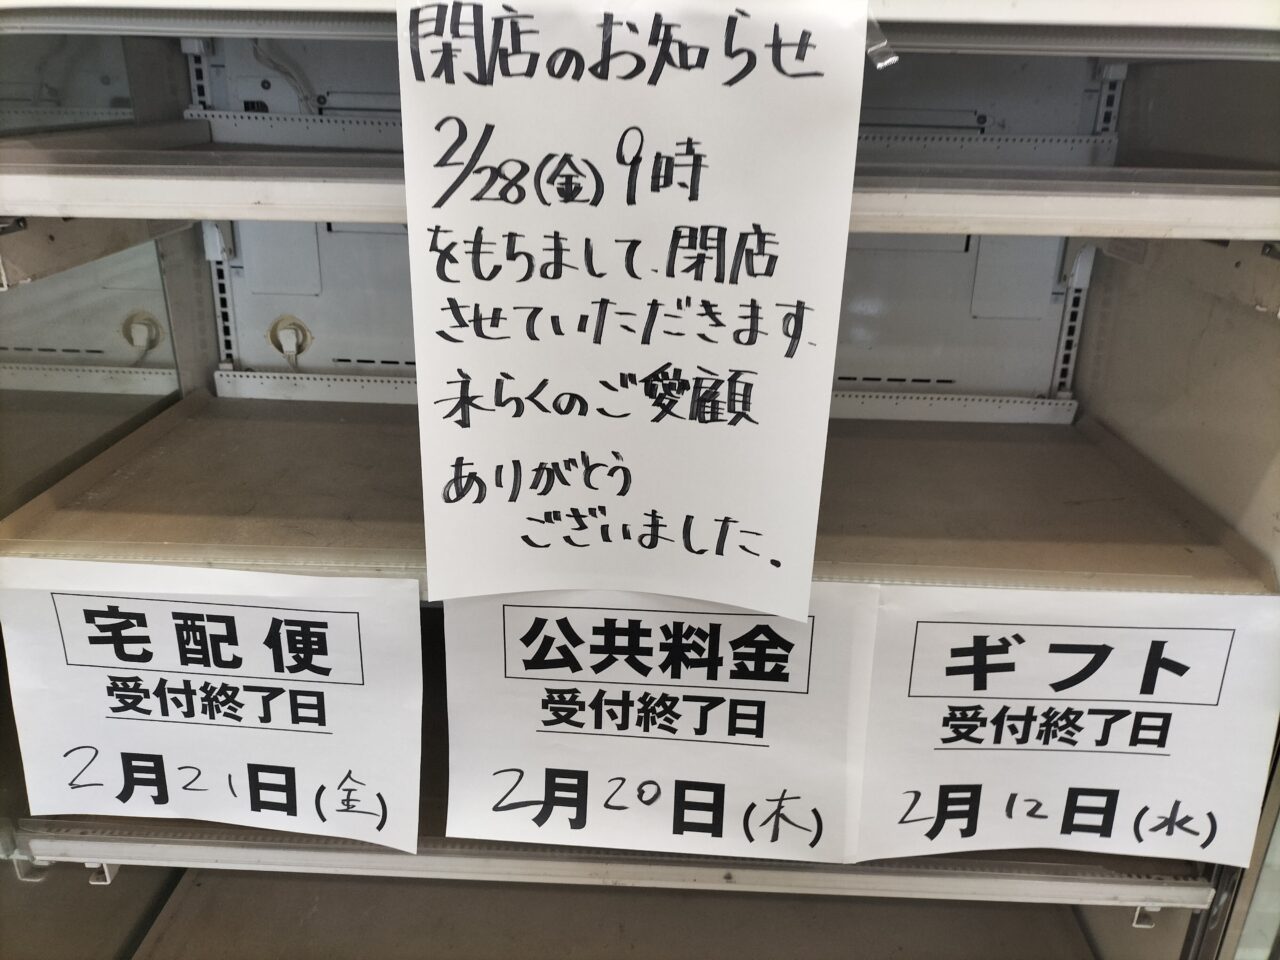 閉店のお知らせ
2/28(金)9時
をもちまして、閉店
させていただきます。
永らくのご愛顧
ありがとう
ございました。
宅配便
受付終了日
2月21日(金)
公共料金
受付終了日
2月20日(木)
ギフト
受付終了日
2月12日(水)